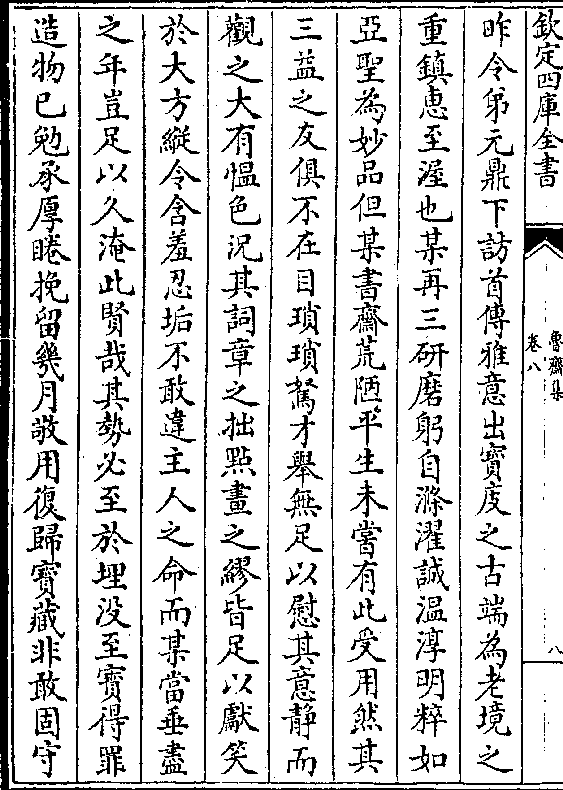 欽定四庫全書
魯齋集
卷八
八
昨令弟元鼎下訪首傳雅意出寳庋之古端為老境之
重鎮恵至渥也某再三研磨躬自滌濯誠溫淳明粹如
亞聖為妙品但某書齋荒陋平生未嘗有此受用然其
三益之友俱不在目瑣瑣駑才舉無足以慰其意静而
觀之大有慍色況其詞章之拙點畫之繆皆足以獻笑
於大方縱令含羞忍垢不敢違主人之命而某當垂盡
之年豈足以久淹此賢哉其勢必至於埋没至寳得罪
造物已勉承厚睠挽留幾月敬用復歸寳藏非敢固守